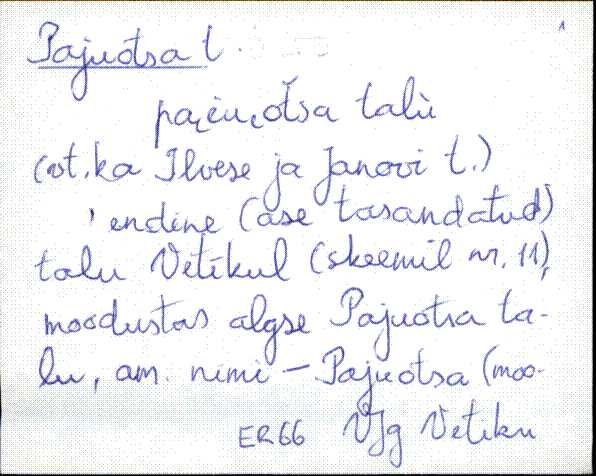 Pajuotsa t.
pa̭i̯u̯otsa talù
(vt. ka Ilvese ja Janovi t.)
endine (ase tasandatud)
talu Vetikul (skeemil nr. 11),
moodustas algse Pajuotsa ta-
lu, am. nimi – Pajuotsa (moo-
ER 66 VJg Vetiku